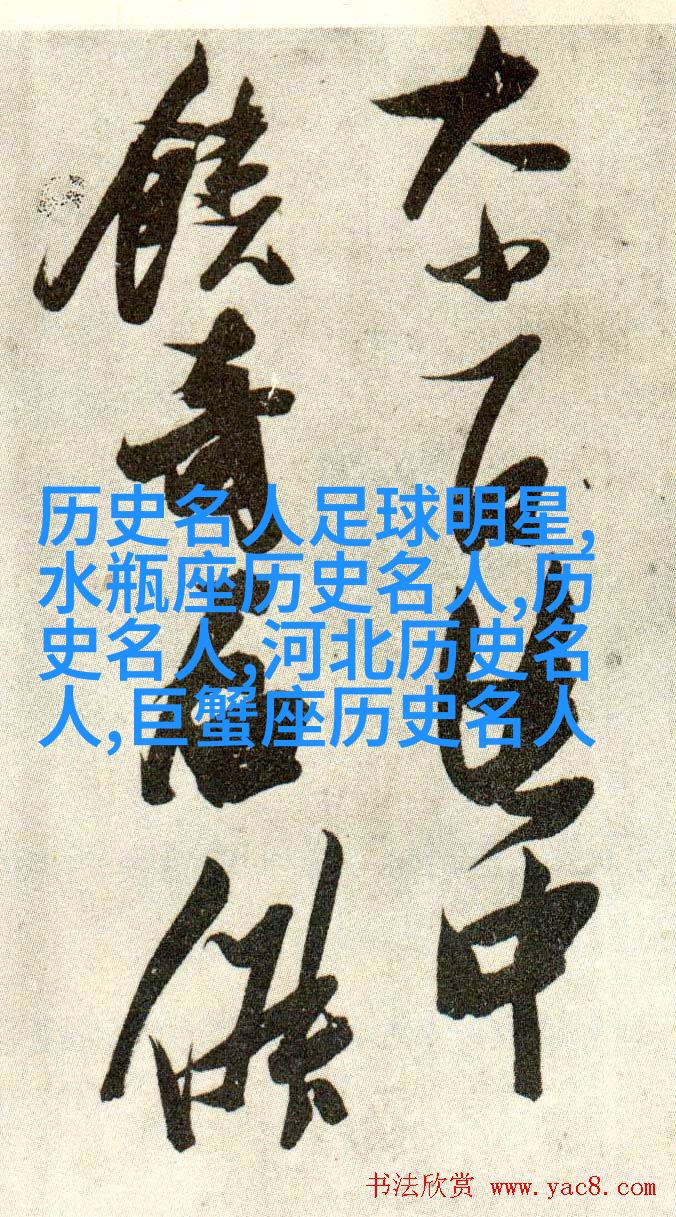 大小百
中
饒奇
历史名人足球明星,
水瓶座历史名人,历
史名人,河北历史名
人,巨蟹座历史名人
书法欣赏 www.yac8.com